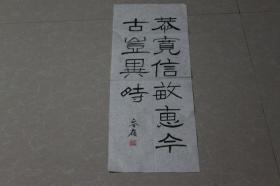 恭寬信敏惠今
古豈異時